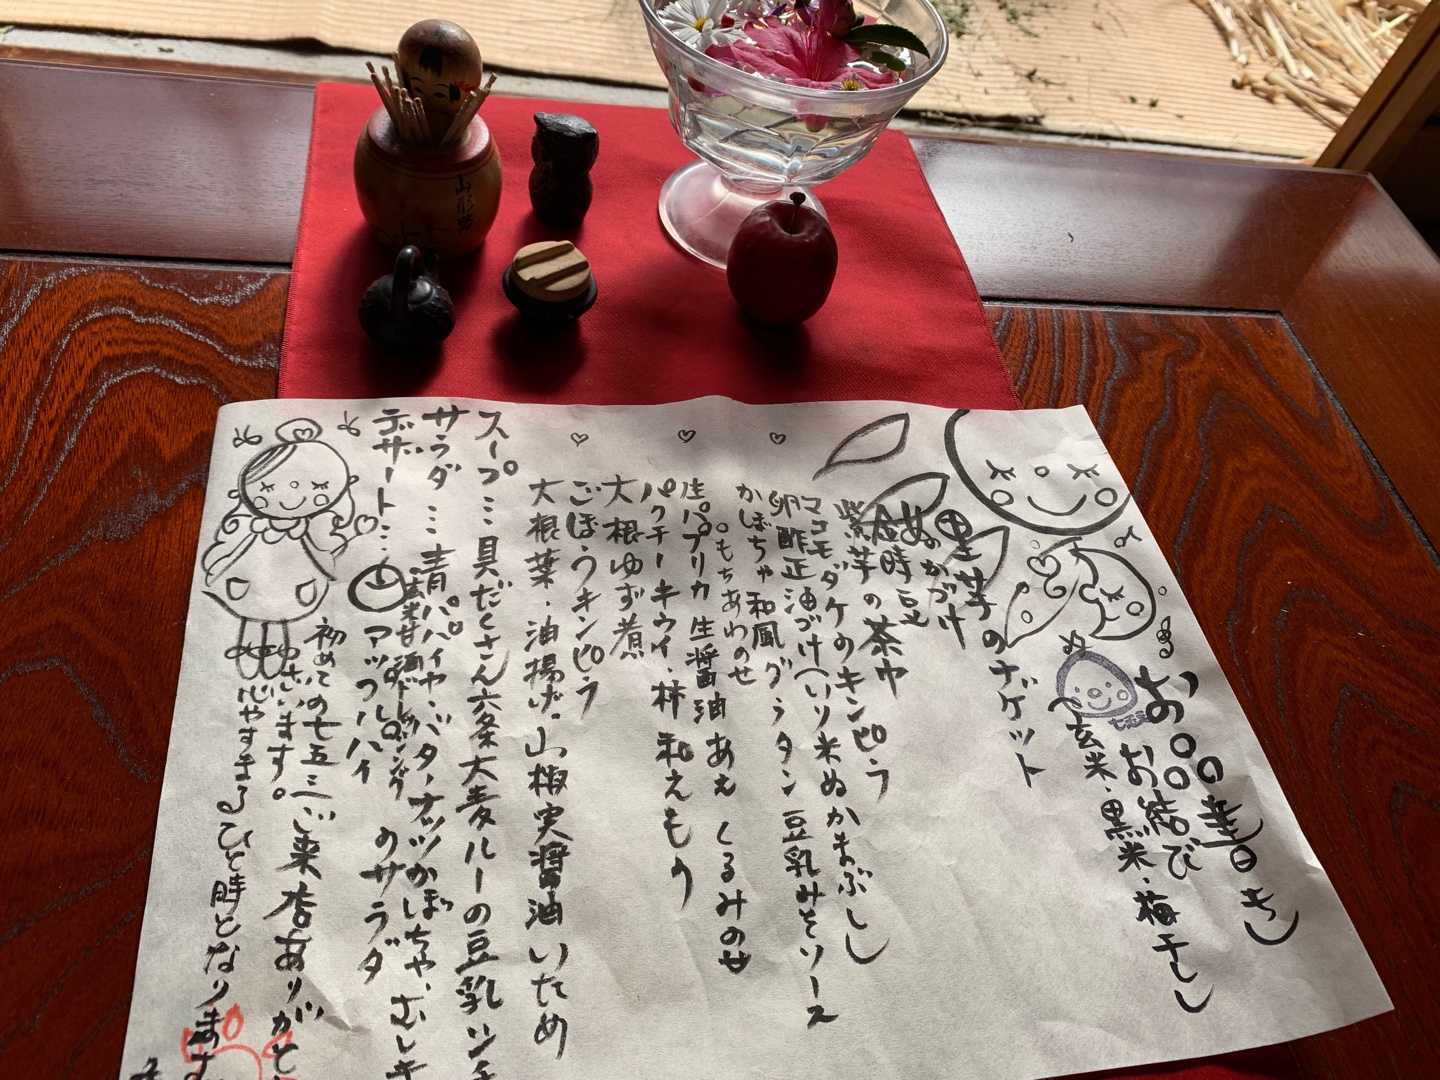 お品書き
お結び
玄米・黒米・梅干し
里芋のナゲット
ぬかづけ
金時豆
紫芋の茶巾
マコモダケのキンピラ
卵酢正油づけ いり米ぬかまぶし
かぼちゃ和風グラタン 豆乳みそソース
もちあわのせ
生パプリカ 生醤油あえ くるみのせ
パクチーキウイ、柿 和えもの
大根ゆず煮
ごぼうキンピラ
大根葉・油揚げ・山椒実醤油いため
スープ…具だくさん六条大麦ルーの豆乳シチ
サラダ…青パパイヤ・バターナッツかぼちゃ、むしキ
のサラダ
デザート…
玄米甘酒ドレッシング
アップルパイ
初めての ご来店ありがと
ございます。
心やすまるひと時となります
山形